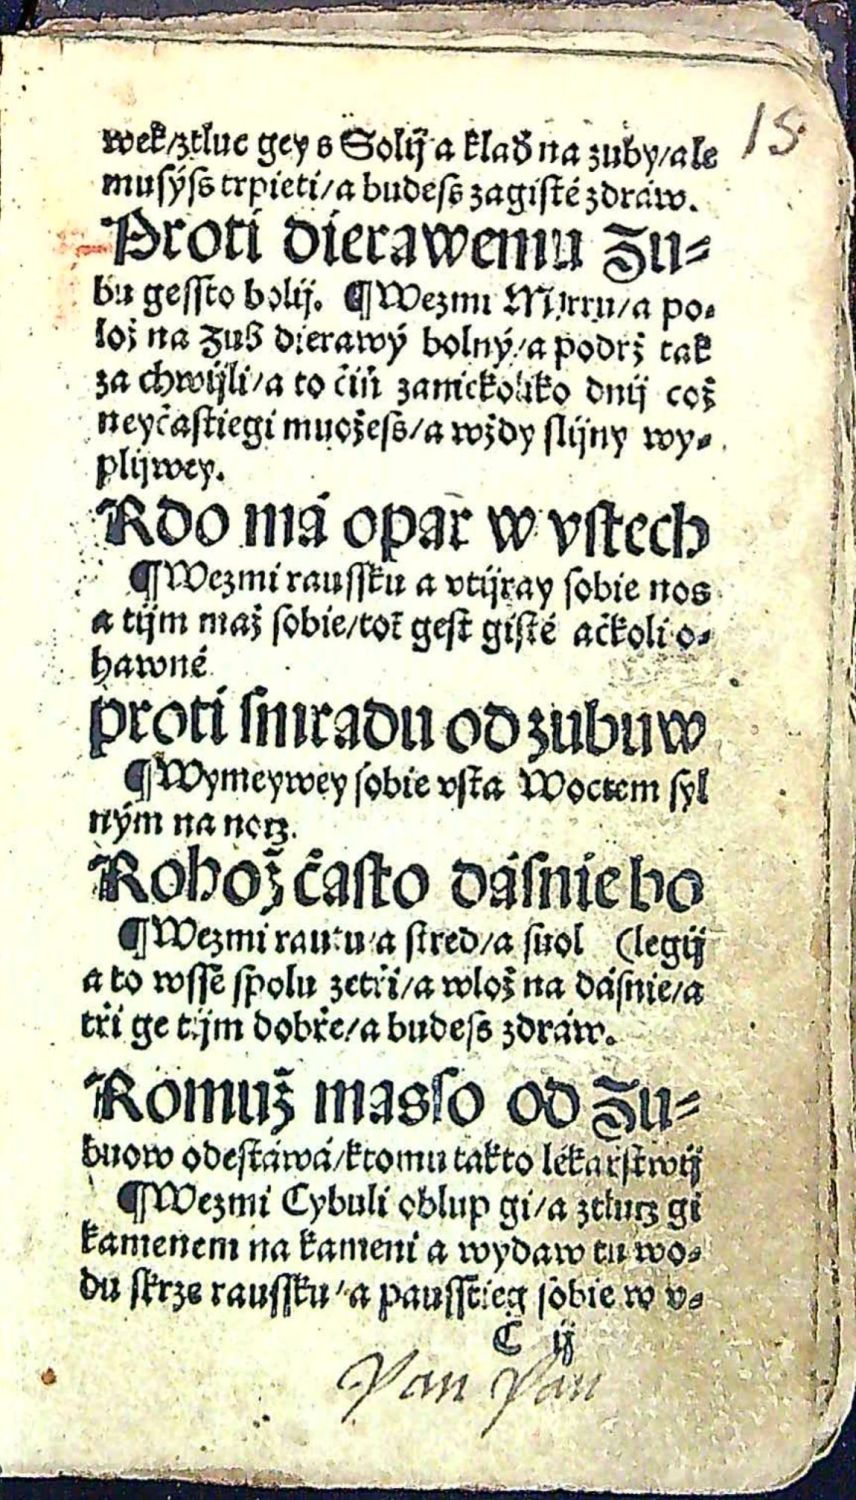 wek/ztluc gey s Solij a klad na zuby/ale
musýss trpieti/a budess zagisté zdráw.
15
Proti dierawemu Zu⸗
bu gessto bolij. ¶ Wezmi Mirru/a po⸗
lož na Zub dierawý bolný/a podrž tak
za chwijli/a to čiň zanickoliko dnij což
neyčastiegi muožess/a wždy slijny wy⸗
plijwey.
Kdo má opar w vstech
¶ Wezmi raussku a vtijray sobie nos
a tijm maž sobie/toť gest gisté ačkoli o⸗
hawné
Proti smradu od zubuw
¶ Wymeywey sobie vsta Woctem syl
ným na noc.
Kohož často dásnie bo
¶ Wezmi rautu a stred/a suol (legij
a to wssě spolu zetři/a wlož na dásnie/a
tři ge tijm dobře/a budess zdráw.
Komuž masso od Zu⸗
buow odestáwá/ktomu takto lékařstwij
¶ Wezmi Cybuli oblup gi/a ztlucz gi
kamenem na kameni a wydaw tu wo⸗
du skrze raussku/a pausstieg sobie w v⸗
C ij
Pan Pan